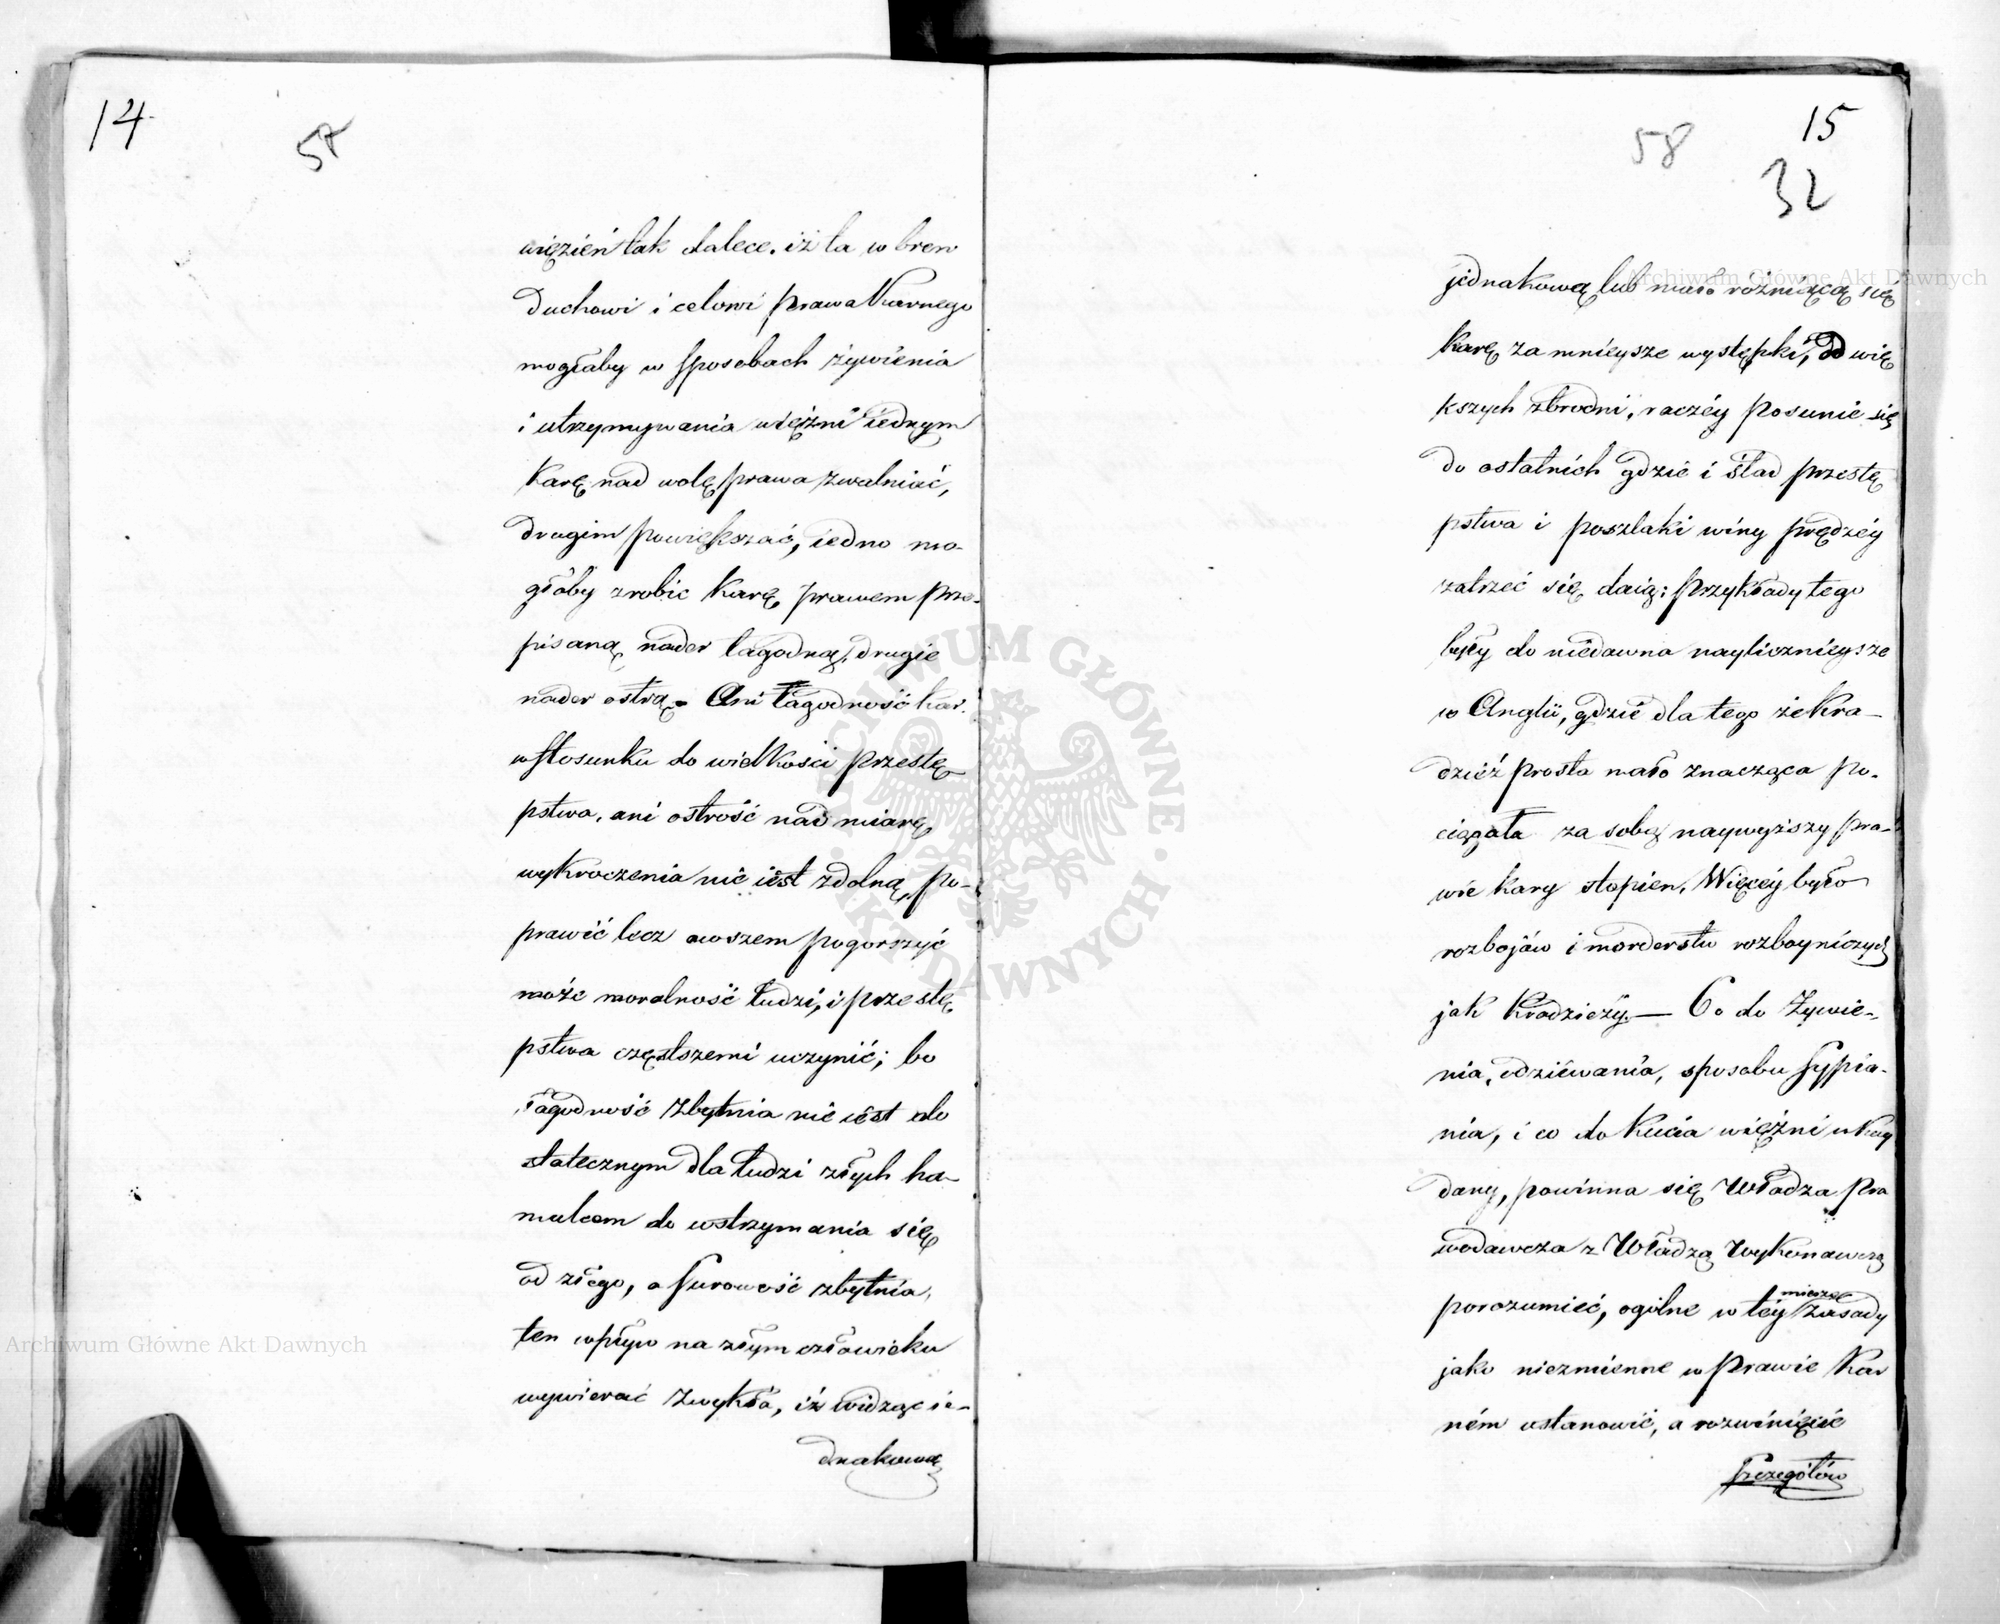 14
57
więzień tak dalece, iż ta w brew
duchowi i celowi prawa Karnego
mogłaby w sposobach żywienia
i utrzymywania więźni iednym
Karę nad wolę prawa zwalniać,
drugim powiększać, iedno mo-
głoby zrobic Karę prawem prze-
pisaną nader łagodną, drugie
nader ostrą. Ani łagodność kar
w stosunku do wielkości przestę
pstwa, ani ostrość nad miarę
wykroczenia nie iest zdolną po-
prawić lecz owszem pogorszyć
może moralność ludzi, i przestę
pstwa częstszemi uczynić; bo
łagodność zbytnia nie iest do
statecznym dla ludzi złych ha-
mulcem do wstrzymania się
od złego, a surowość zbytnia,
ten wpływ na złym człowieku
wywierać zwykła, iż widząc ie-
dnakową
15
58
32
jednakową lub mało rożniącą się
karę za mnieysze występki, do wię
kszych zbrodni, raczéy posunie się
do ostatnich gdzie i ślad przestę
pstwa i poszlaki winy prędzéy
zatrzeć się daią; przykłady tego
były do niedawna naylicznieysze
w Anglii, gdzie dla tego że Kra-
dzież prosta mało znacząca po-
ciągała za sobą naywyższy pra-
wie kary stopien. Więcéy było
rozbojów i morderstw rozboyniczych
jak Kradzieży. — Co do żywie-
nia, odziewania, sposobu sypia-
nia, i co do Kucia więźni w Kay
dany, powinna się Władza Pra
wodawcza z Władzą Wykonawczą
porozumieć, ogólne w téy mierze zasady
jako niezmienne w Prawie Kar
ném ustanowić, a rozwinięcie
szczegółów
Archiwum Główne Akt Dawnych
Archiwum Główne Akt Dawnych
ARCHIWUM GŁÓWNE · AKT DAWNYCH ·